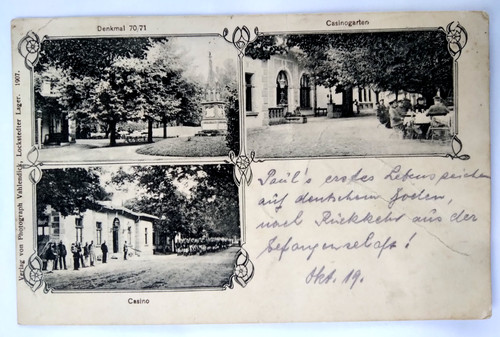 Denkmal 70/71
Casinogarten
Verlag von Photograph Vahlendick, Lockstedter Lager. 1907.
Paul's erstes Lebenszeichen
auf deutschem Boden,
nach Rückkehr aus der
Gefangenschaft!
Okt. 19.
Casino